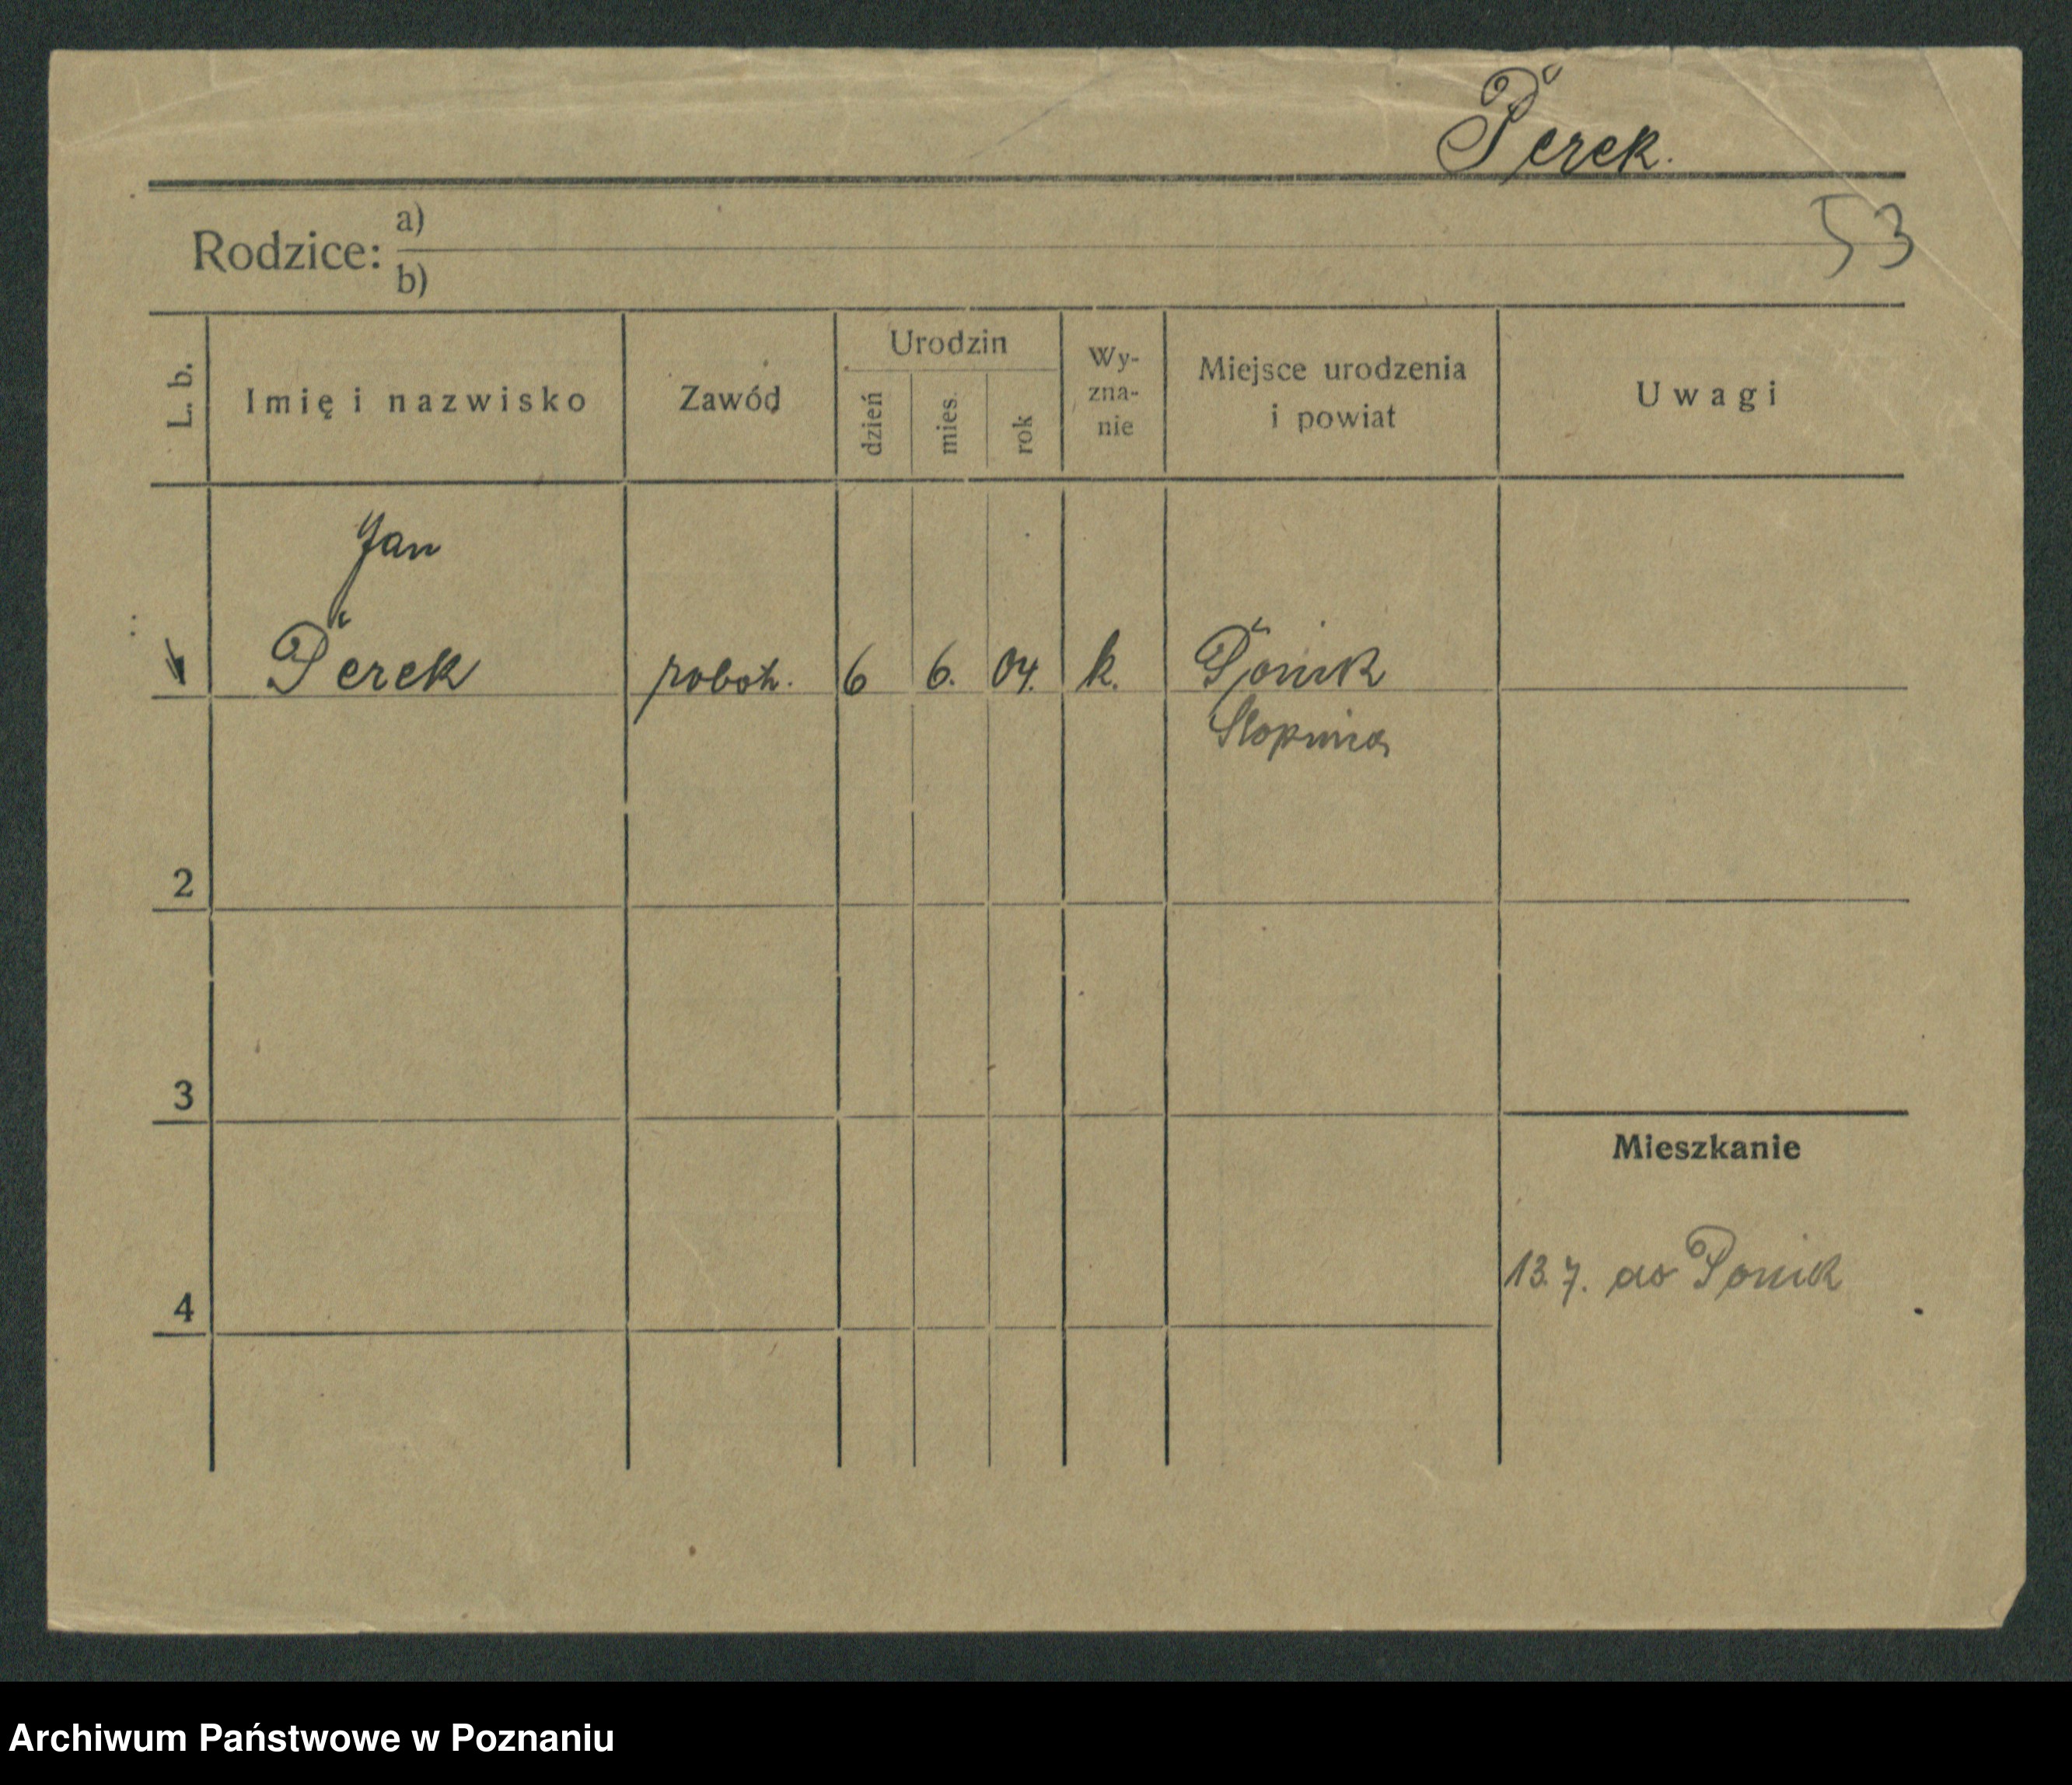 Perek.
53
Rodzice: a)
b)
L. b.
Imię i nazwisko
Zawód
Urodzin
dzień
mies.
rok
Wy-
zna-
nie
Miejsce urodzenia
i powiat
Uwagi
Jan
Perek
robotn.
6
6.
04.
k.
Ponik
Stopnica
2
3
Mieszkanie
13.7. do Ponik
4
Archiwum Państwowe w Poznaniu